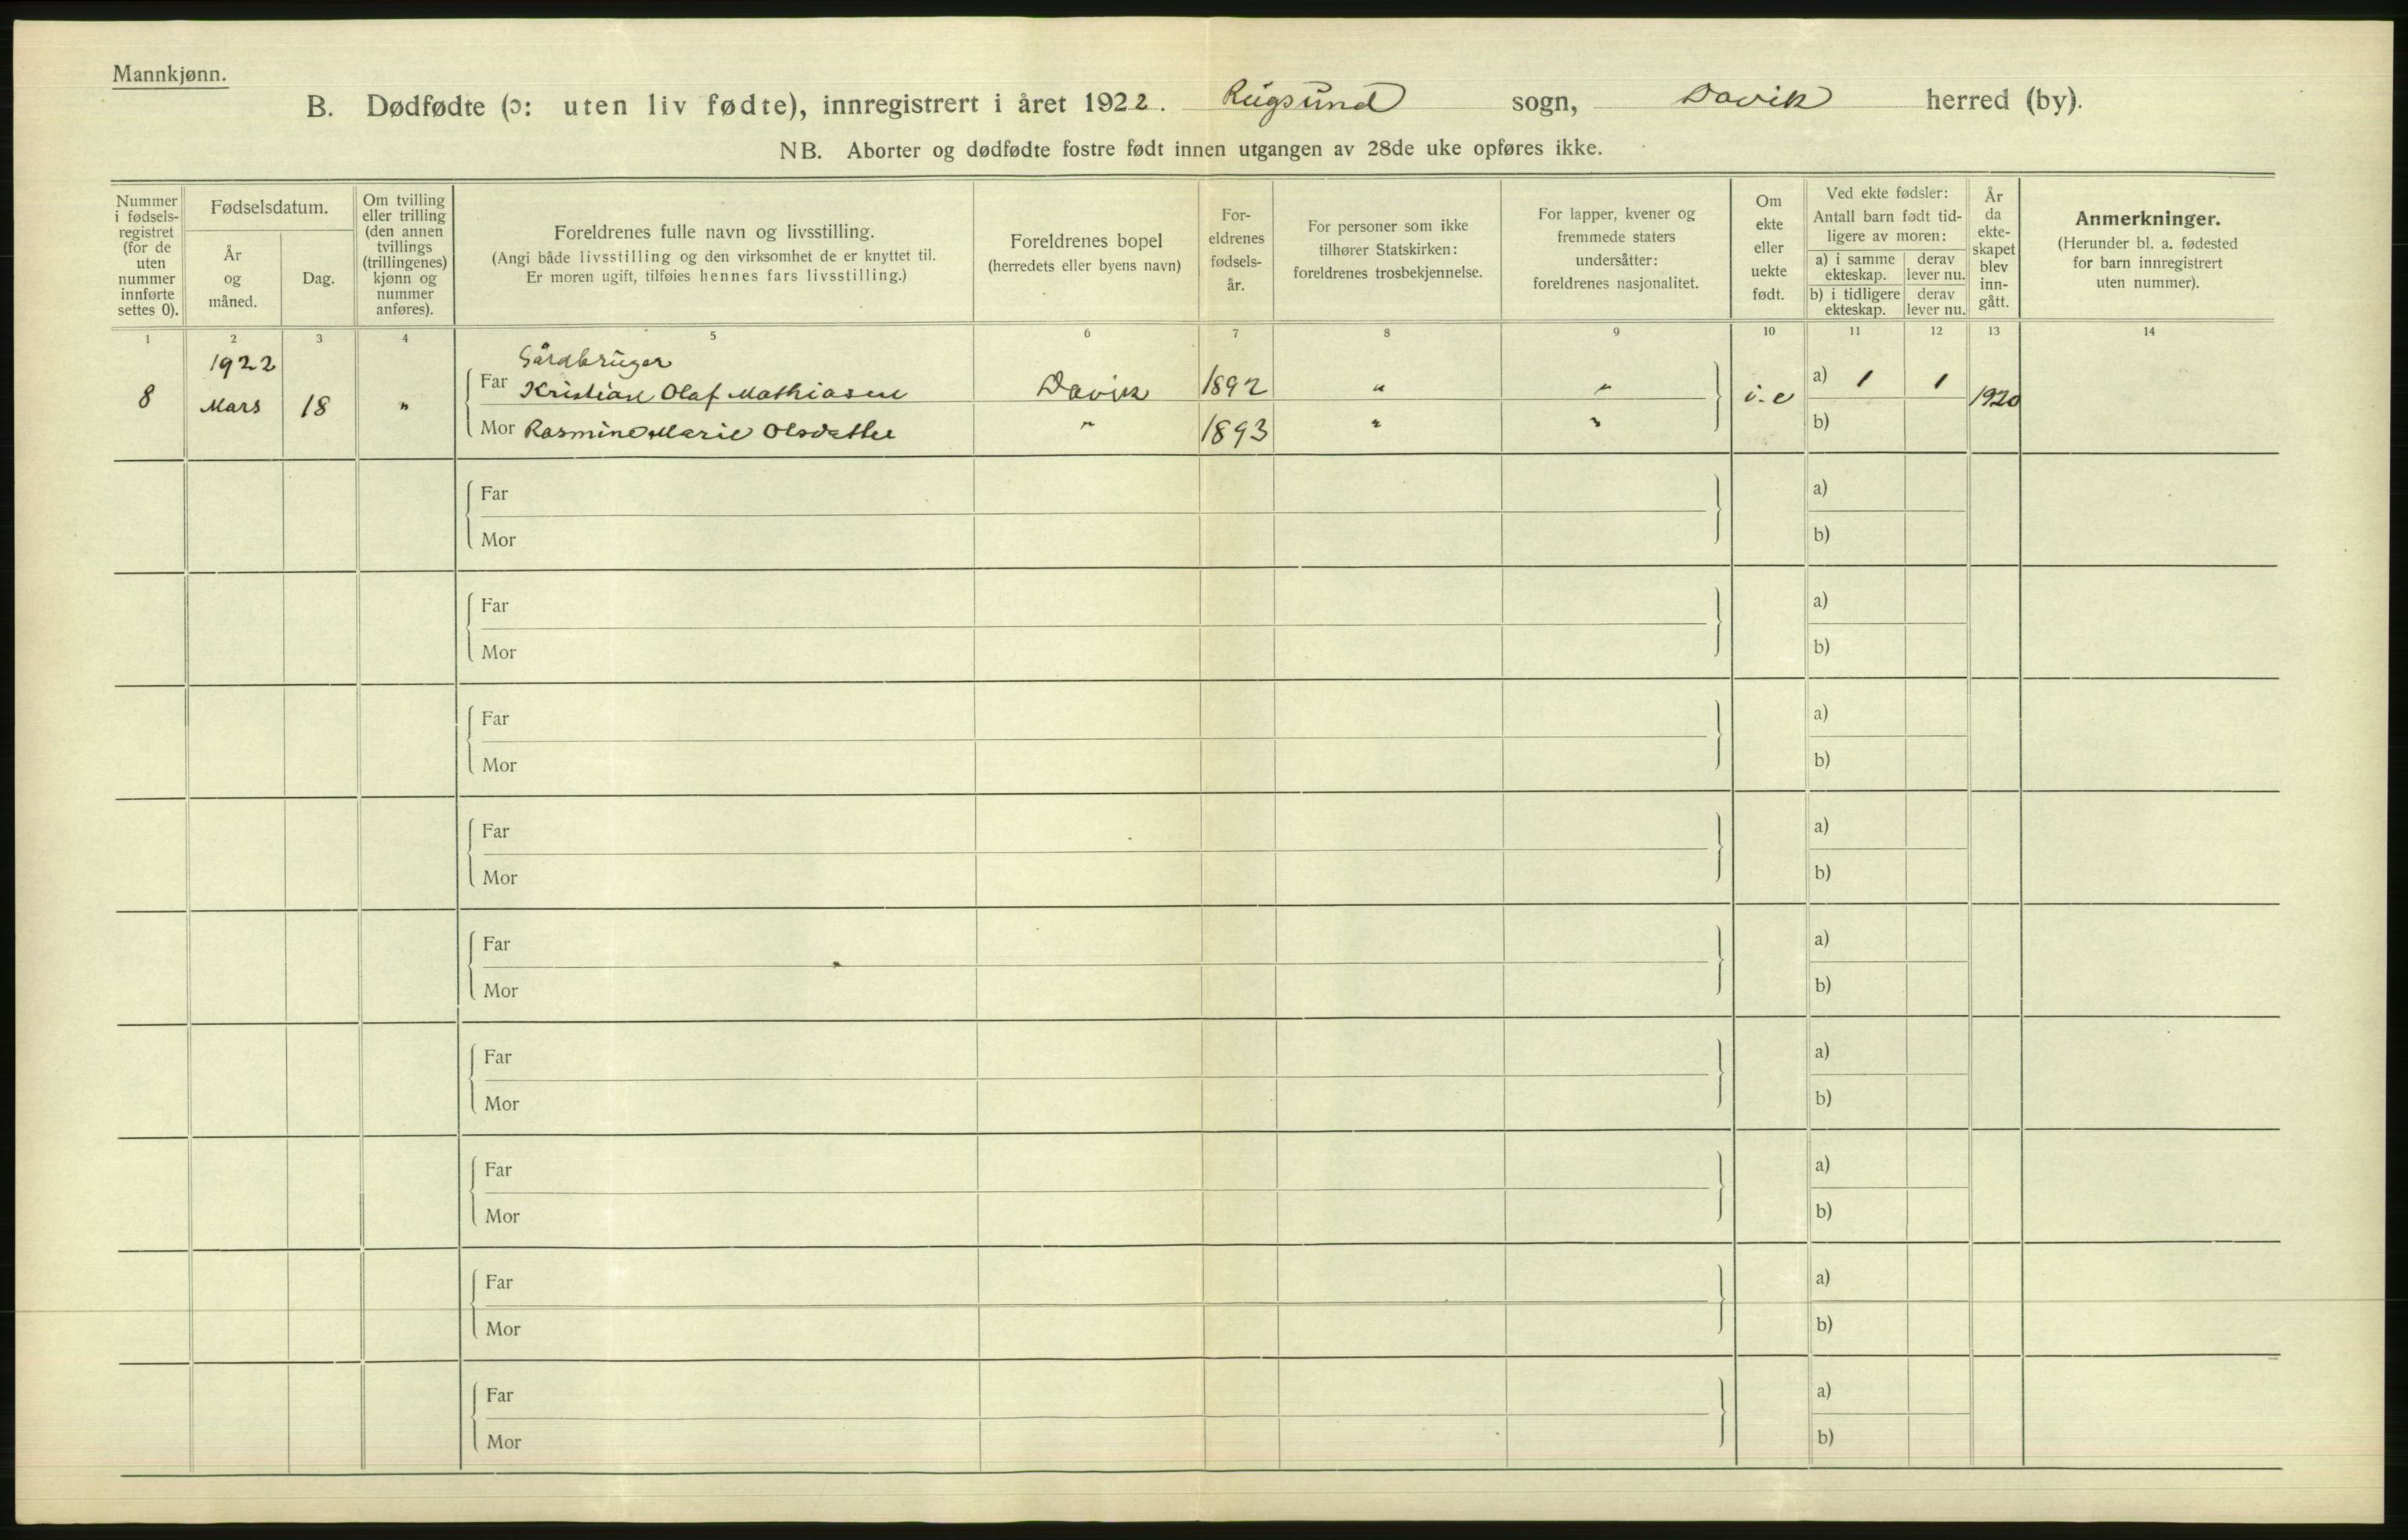 Mannkjønn.
B. Dødfødte (ɔ: uten liv fødte), innregistrert i året 1922. Rugsund sogn, Davik herred (by).
NB. Aborter og dødfødte fostre født innen utgangen av 28de uke opføres ikke.
Nummer
i fødsels-
registret
(for de
uten
nummer
innførte
settes 0).
Fødselsdatum.
År
og
måned.
Dag.
Om tvilling
eller trilling
(den annen
tvillings
(trillingenes)
kjønn og
nummer
anføres).
Foreldrenes fulle navn og livsstilling.
(Angi både livsstilling og den virksomhet de er knyttet til.
Er moren ugift, tilføies hennes fars livsstilling.)
Foreldrenes bopel
(herredets eller byens navn)
For-
eldrenes
fødsels-
år.
For personer som ikke
tilhører Statskirken:
foreldrenes trosbekjennelse.
For lapper, kvener og
fremmede staters
undersåtter:
foreldrenes nasjonalitet.
Om
ekte
eller
uekte
født.
Ved ekte fødsler:
Antall barn født tid-
ligere av moren:
a) i samme
ekteskap.
derav
lever nu.
b) i tidligere
ekteskap.
derav
lever nu.
År
da
ekte-
skapet
blev
inn-
gått.
Anmerkninger.
(Herunder bl. a. fødested
for barn innregistrert
uten nummer).
1 2 3 4 5 6 7 8 9 10 11 12 13 14
1922
Gårdbruger
8 Mars 18 "
Far Kristian Olaf Mathiasen Davik 1892 " " i.e a) 1 1 1920
Mor Rasmine Marie Olsdatter " 1893 " " b)
Far a)
Mor b)
Far a)
Mor b)
Far a)
Mor b)
Far a)
Mor b)
Far a)
Mor b)
Far a)
Mor b)
Far a)
Mor b)
Far a)
Mor b)
Far a)
Mor b)